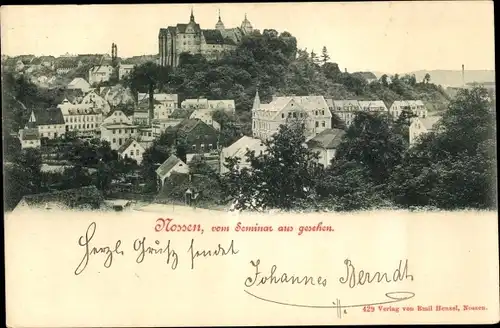 Nossen, vom Seminar aus gesehen.
Herzl. Gruß sendet
Johannes Berndt
429 Verlag von Emil Hensel, Nossen.